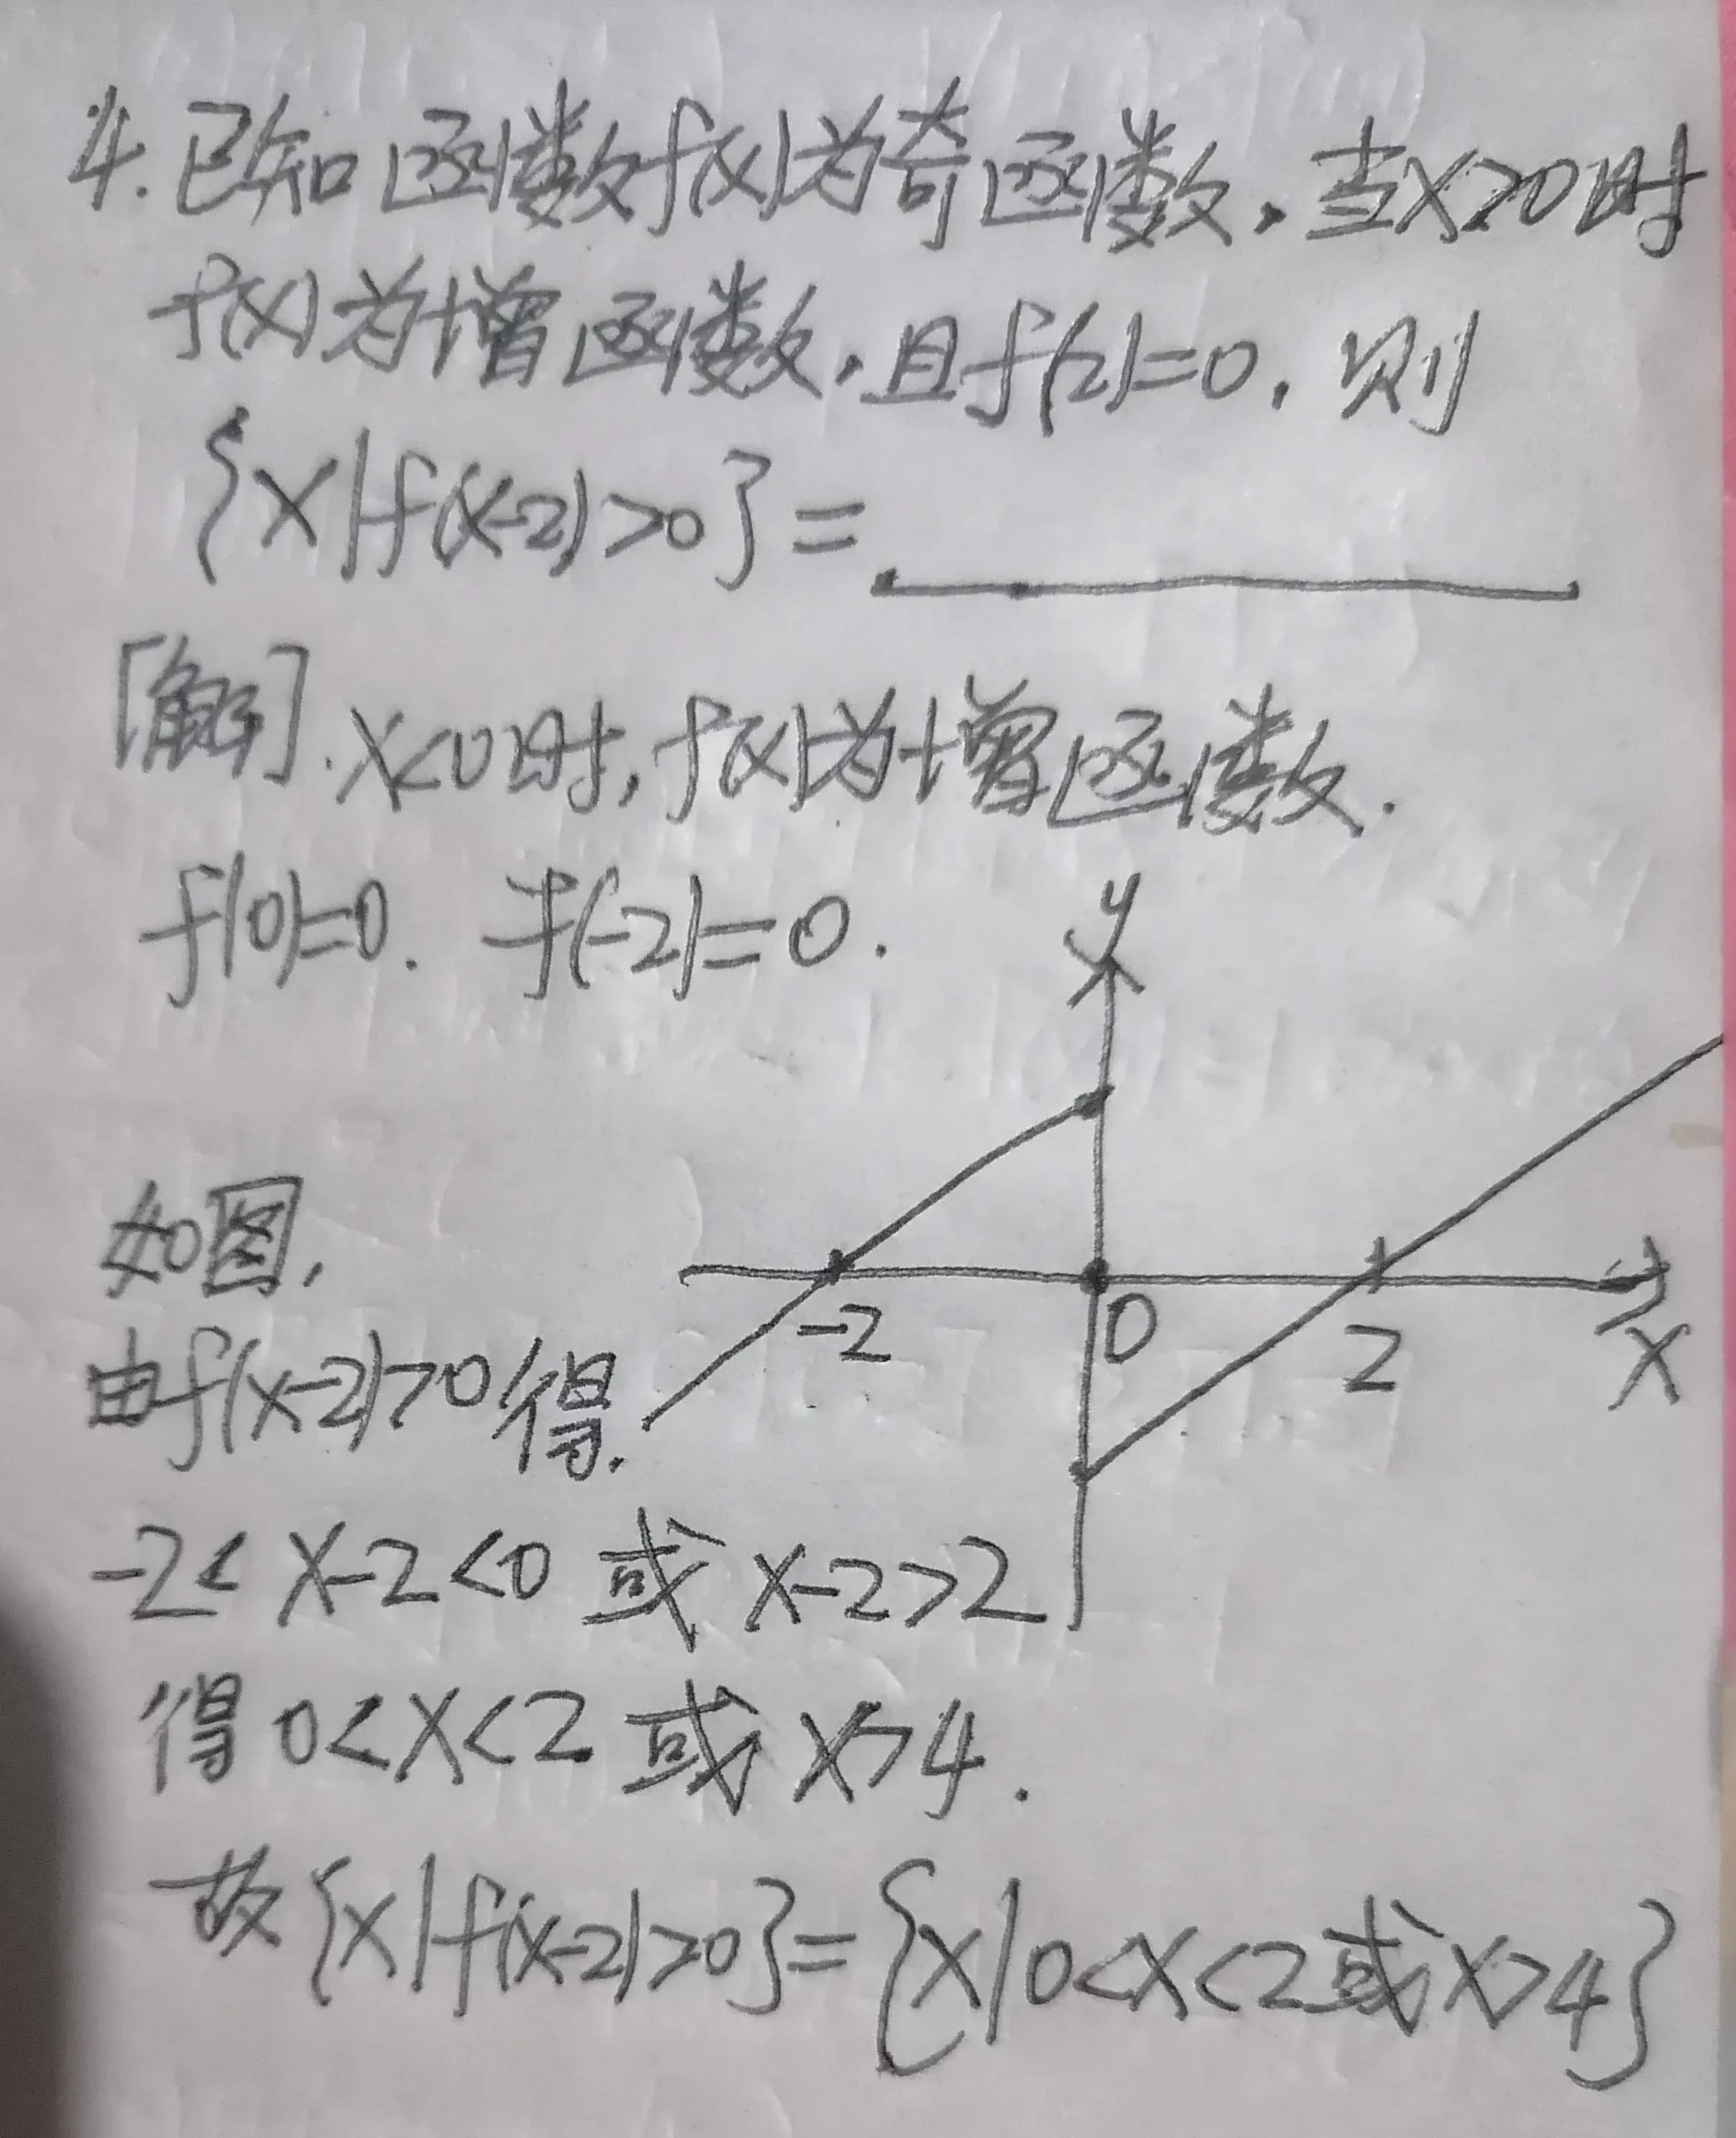 4. 已知函数f(x)为奇函数,当x>0时
f(x)为增函数,且f(2)=0,则
{x|f(x-2)>0}=
[解].x<0时,f(x)为增函数.
f(0)=0. f(-2)=0.
y
如图,
-2 0 2 x
由f(x-2)>0得.
-2< x-2<0 或 x-2>2
得 0<x<2 或 x>4.
故{x|f(x-2)>0}={x|0<x<2或x>4}